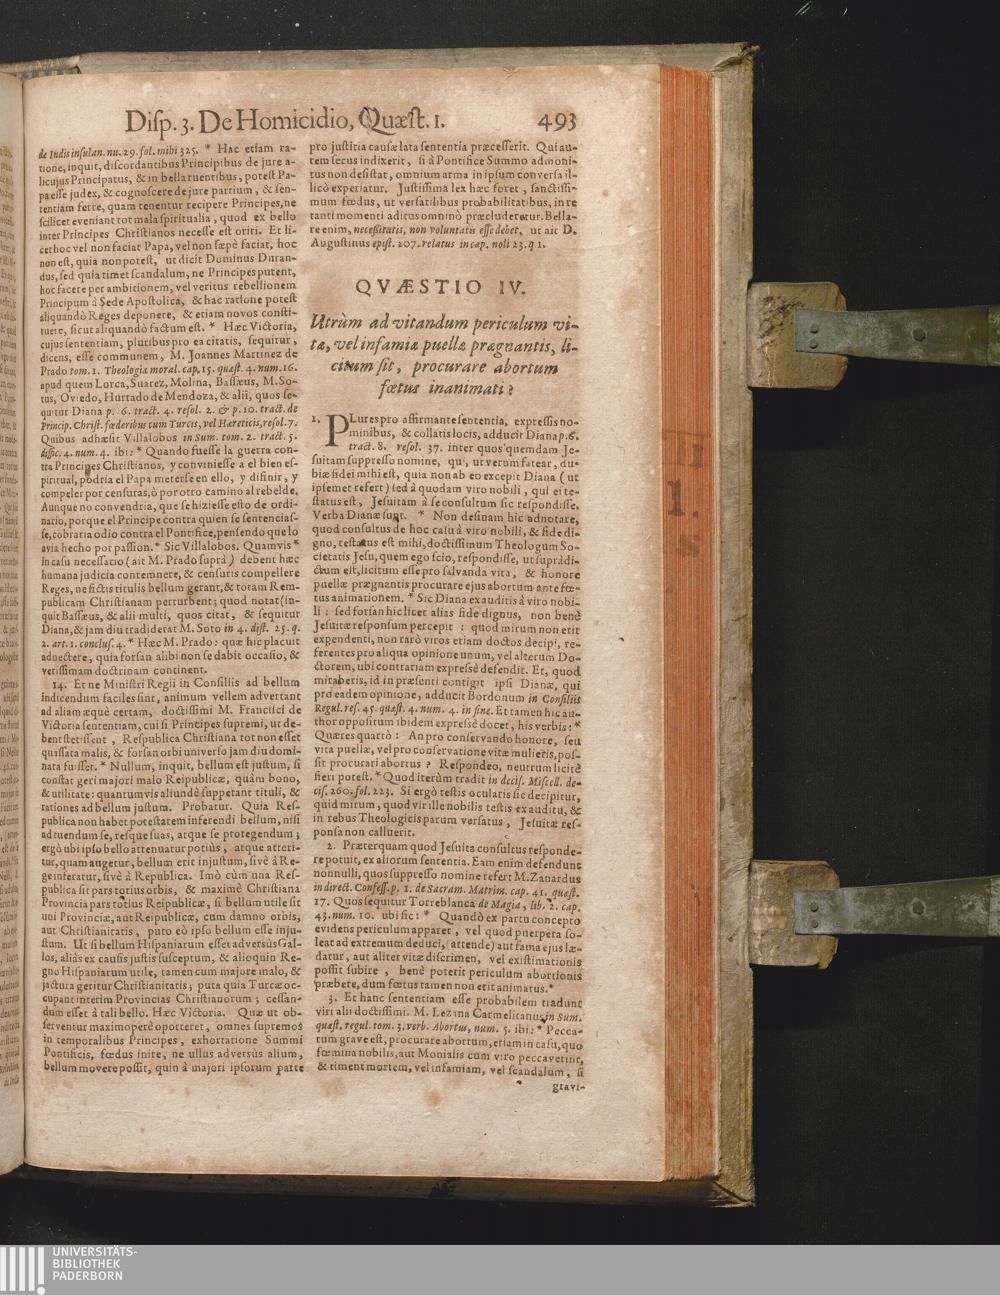 Disp. 3. De Homicidio, Quæst. 1. 493
de Indis insulan. nu. 29. fol. mihi 325. * Hac etiam ra-
tione, inquit, discordantibus Principibus de jure a-
licujus Principatus, & in bella ruentibus, potest Pa-
pa esse judex, & cognoscere de jure partium, & sen-
tentiam ferre, quam tenentur recipere Principes, ne
scilicet eveniant tot mala spiritualia, quod ex bello
inter Principes Christianos necesse est oriri. Et li-
cet hoc vel non faciat Papa, vel non sæpè faciat, hoc
non est, quia non potest, ut dicit Dominus Duran-
dus, sed quia timet scandalum, ne Principes putent,
hoc facere per ambitionem, vel veritus rebellionem
Principum à Sede Apostolica, & hac ratione potest
aliquandò Reges deponere, & etiam novos consti-
tuere, sicut aliquandò factum est. * Hæc Victoria,
cujus sententiam, pluribus pro ea citatis, sequitur,
dicens, esse communem, M. Joannes Martinez de
Prado tom. 1. Theologiæ moral. cap. 15. quæst. 4. num. 16.
apud quem Lorca, Suarez, Molina, Bassæus, M. So-
tus, Oviedo, Hurtado de Mendoza, & alii, quos se-
quitur Diana p. 6. tract. 4. resol. 2. & p. 10. tract. de
Princip. Christ. fœderibus cum Turcis, vel Hæreticis, resol. 7.
Quibus adhæsit Villalobos in Sum. tom. 2. tract. 5.
diffic. 4. num. 4. ibi: * Quando fuesse la guerra con-
tra Principes Christianos, y conviniesse a el bien es-
piritual, podria el Papa meterse en ello, y difinir, y
compeler por censuras, ò por otro camino al rebelde.
Aunque no convendria, que se hiziesse esto de ordi-
nario, porque el Principe contra quien se sentencias-
se, cobraria odio contra el Pontifice, pensendo que lo
avia hecho por passion. * Sic Villalobos. Quamvis *
in casu necessario (ait M. Prado suprà) debent hæc
humana judicia contemnere, & censuris compellere
Reges, ne fictis titulis bellum gerant, & totam Rem-
publicam Christianam perturbent; quod notat (in-
quit Bassæus, & alii multi, quos citat, & sequitur
Diana, & jam diu tradiderat M. Soto in 4. dist. 25. q.
2. art. 1. conclus. 4. * Hæc M. Prado: quæ hìc placuit
adnectere, quia forsan alibi non se dabit occasio, &
verissimam doctrinam continent.
14. Et ne Ministri Regii in Consiliis ad bellum
indicendum faciles sint, animum vellem advertant
ad aliam æquè certam, doctissimi M. Francisci de
Victoria sententiam, cui si Principes supremi, ut de-
bent stetissent, Respublica Christiana tot non esset
quissata malis, & forsan orbi universo jam diu domi-
nata fuisset. * Nullum, inquit, bellum est justum, si
constat geri majori malo Reipublicæ, quàm bono,
& utilitate: quantumvis aliundè suppetant tituli, &
rationes ad bellum justum. Probatur. Quia Res-
publica non habet potestatem inferendi bellum, nisi
ad tuendum se, resque suas, atque se protegendum;
ergò ubi ipso bello attenuatur potiùs, atque atteri-
tur, quam augetur, bellum erit injustum, sivè à Re-
ge inferatur, sivè à Republica. Imò cùm una Res-
publica sit pars totius orbis, & maximè Christiana
Provincia pars totius Reipublicæ, si bellum utile sit
uni Provinciæ, aut Reipublicæ, cum damno orbis,
aut Christianitatis, puto eò ipso bellum esse inju-
stum. Ut si bellum Hispaniarum esset adversùs Gal-
los, aliàs ex causis justis susceptum, & alioquin Re-
gno Hispaniarum utile, tamen cum majore malo, &
jactura geritur Christianitatis; puta quia Turcæ oc-
cupant interim Provincias Christianorum; cessan-
dum esset à tali bello. Hæc Victoria. Quæ ut ob-
serventur maximoperè oporteret, omnes supremos
in temporalibus Principes, exhortatione Summi
Pontificis, fœdus inire, ne ullus adversùs alium,
bellum movere possit, quin à majori ipsorum parte
pro justitia causæ lata sententia præcesserit. Qui au-
tem secus indixerit, si à Pontifice Summo admoni-
tus non desistat, omnium arma in ipsum conversa il-
licò experiatur. Justissima lex hæc foret, sanctissi-
mum fœdus, ut versatilibus probabilitatibus, in re
tanti momenti aditus omninò præcluderetur. Bella-
re enim, necessitatis, non voluntatis esse debet, ut ait D.
Augustinus epist. 207. relatus in cap. noli 23. q 1.
QVÆSTIO IV.
Utrùm ad vitandum periculum vi-
tæ, vel infamiæ puellæ prægnantis, li-
citum sit, procurare abortum
fœtus inanimati?
1. PLures pro affirmante sententia, expressis no-
minibus, & collatis locis, adducit Diana p. 6.
tract. 8. resol. 37. inter quos quemdam Je-
suitam suppresso nomine, qui, ut verum fatear, du-
biæ fidei mihi est, quia non ab eo excepit Diana (ut
ipsemet refert) sed à quodam viro nobili, qui ei te-
status est, Jesuitam à se consultum sic respondisse.
Verba Dianæ sunt. * Non desinam hic adnotare,
quod consultus de hoc casu à viro nobili, & fide di-
gno, testatus est mihi, doctissimum Theologum So-
cietatis Jesu, quem ego scio, respondisse, ut suprà di-
ctum est, licitum esse pro salvanda vita, & honore
puellæ prægnantis procurare ejus abortum ante fœ-
tus animationem. * Sic Diana ex auditis à viro nobi-
li: sed forsan hic licet alias fide dignus, non benè
Jesuitæ responsum percepit: quod mirum non erit
expendenti, non rarò viros etiam doctos decipi, re-
ferentes pro aliqua opinione unum, vel alterum Do-
ctorem, ubi contrariam expressè defendit. Et, quod
miraberis, id in præsenti contigit ipsi Dianæ, qui
pro eadem opinione, adducit Bordonum in Consiliis
Regul. res. 45. quæst. 4. num. 4. in fine. Et tamen hic au-
thor oppositum ibidem expressè docet, his verbis: *
Quæres quartò: An pro conservando honore, seu
vita puellæ, vel pro conservatione vitæ mulieris, pos-
sit procurari abortus? Respondeo, neutrum licitè
fieri potest. * Quod iterùm tradit in decis. Miscell. de-
cis. 260. fol. 223. Si ergò testis ocularis sic decipitur,
quid mirum, quod vir ille nobilis testis ex auditu, &
in rebus Theologicis parum versatus, Jesuitæ res-
ponsa non calluerit.
2. Præterquam quod Jesuita consultus responde-
re potuit, ex aliorum sententia. Eam enim defendunt
nonnulli, quos suppresso nomine refert M. Zanardus
in direct. Confess. p. 1. de Sacram. Matrim. cap. 41. quæst.
17. Quos sequitur Torreblanca de Magia, lib. 2. cap.
43. num. 10. ubi sic: * Quandò ex partu concepto
evidens periculum apparet, vel quod puerpera so-
leat ad extremum deduci, (attende) aut fama ejus læ-
datur, aut aliter vitæ discrimen, vel existimationis
possit subire, benè poterit periculum abortionis
præbere, dum fœtus tamen non erit animatus. *
3. Et hanc sententiam esse probabilem tradunt
viri alii doctissimi. M. Lezana Carmelitanus in Sum.
quæst. regul. tom. 3. verb. Abortus, num. 5. ibi: * Pecca-
tum grave est, procurare abortum, etiam in casu, quo
fœmina nobilis, aut Monialis cum viro peccaverint,
& timent mortem, vel infamiam, vel scandalum, si
gravi-
UNIVERSITÄTS-
BIBLIOTHEK
PADERBORN